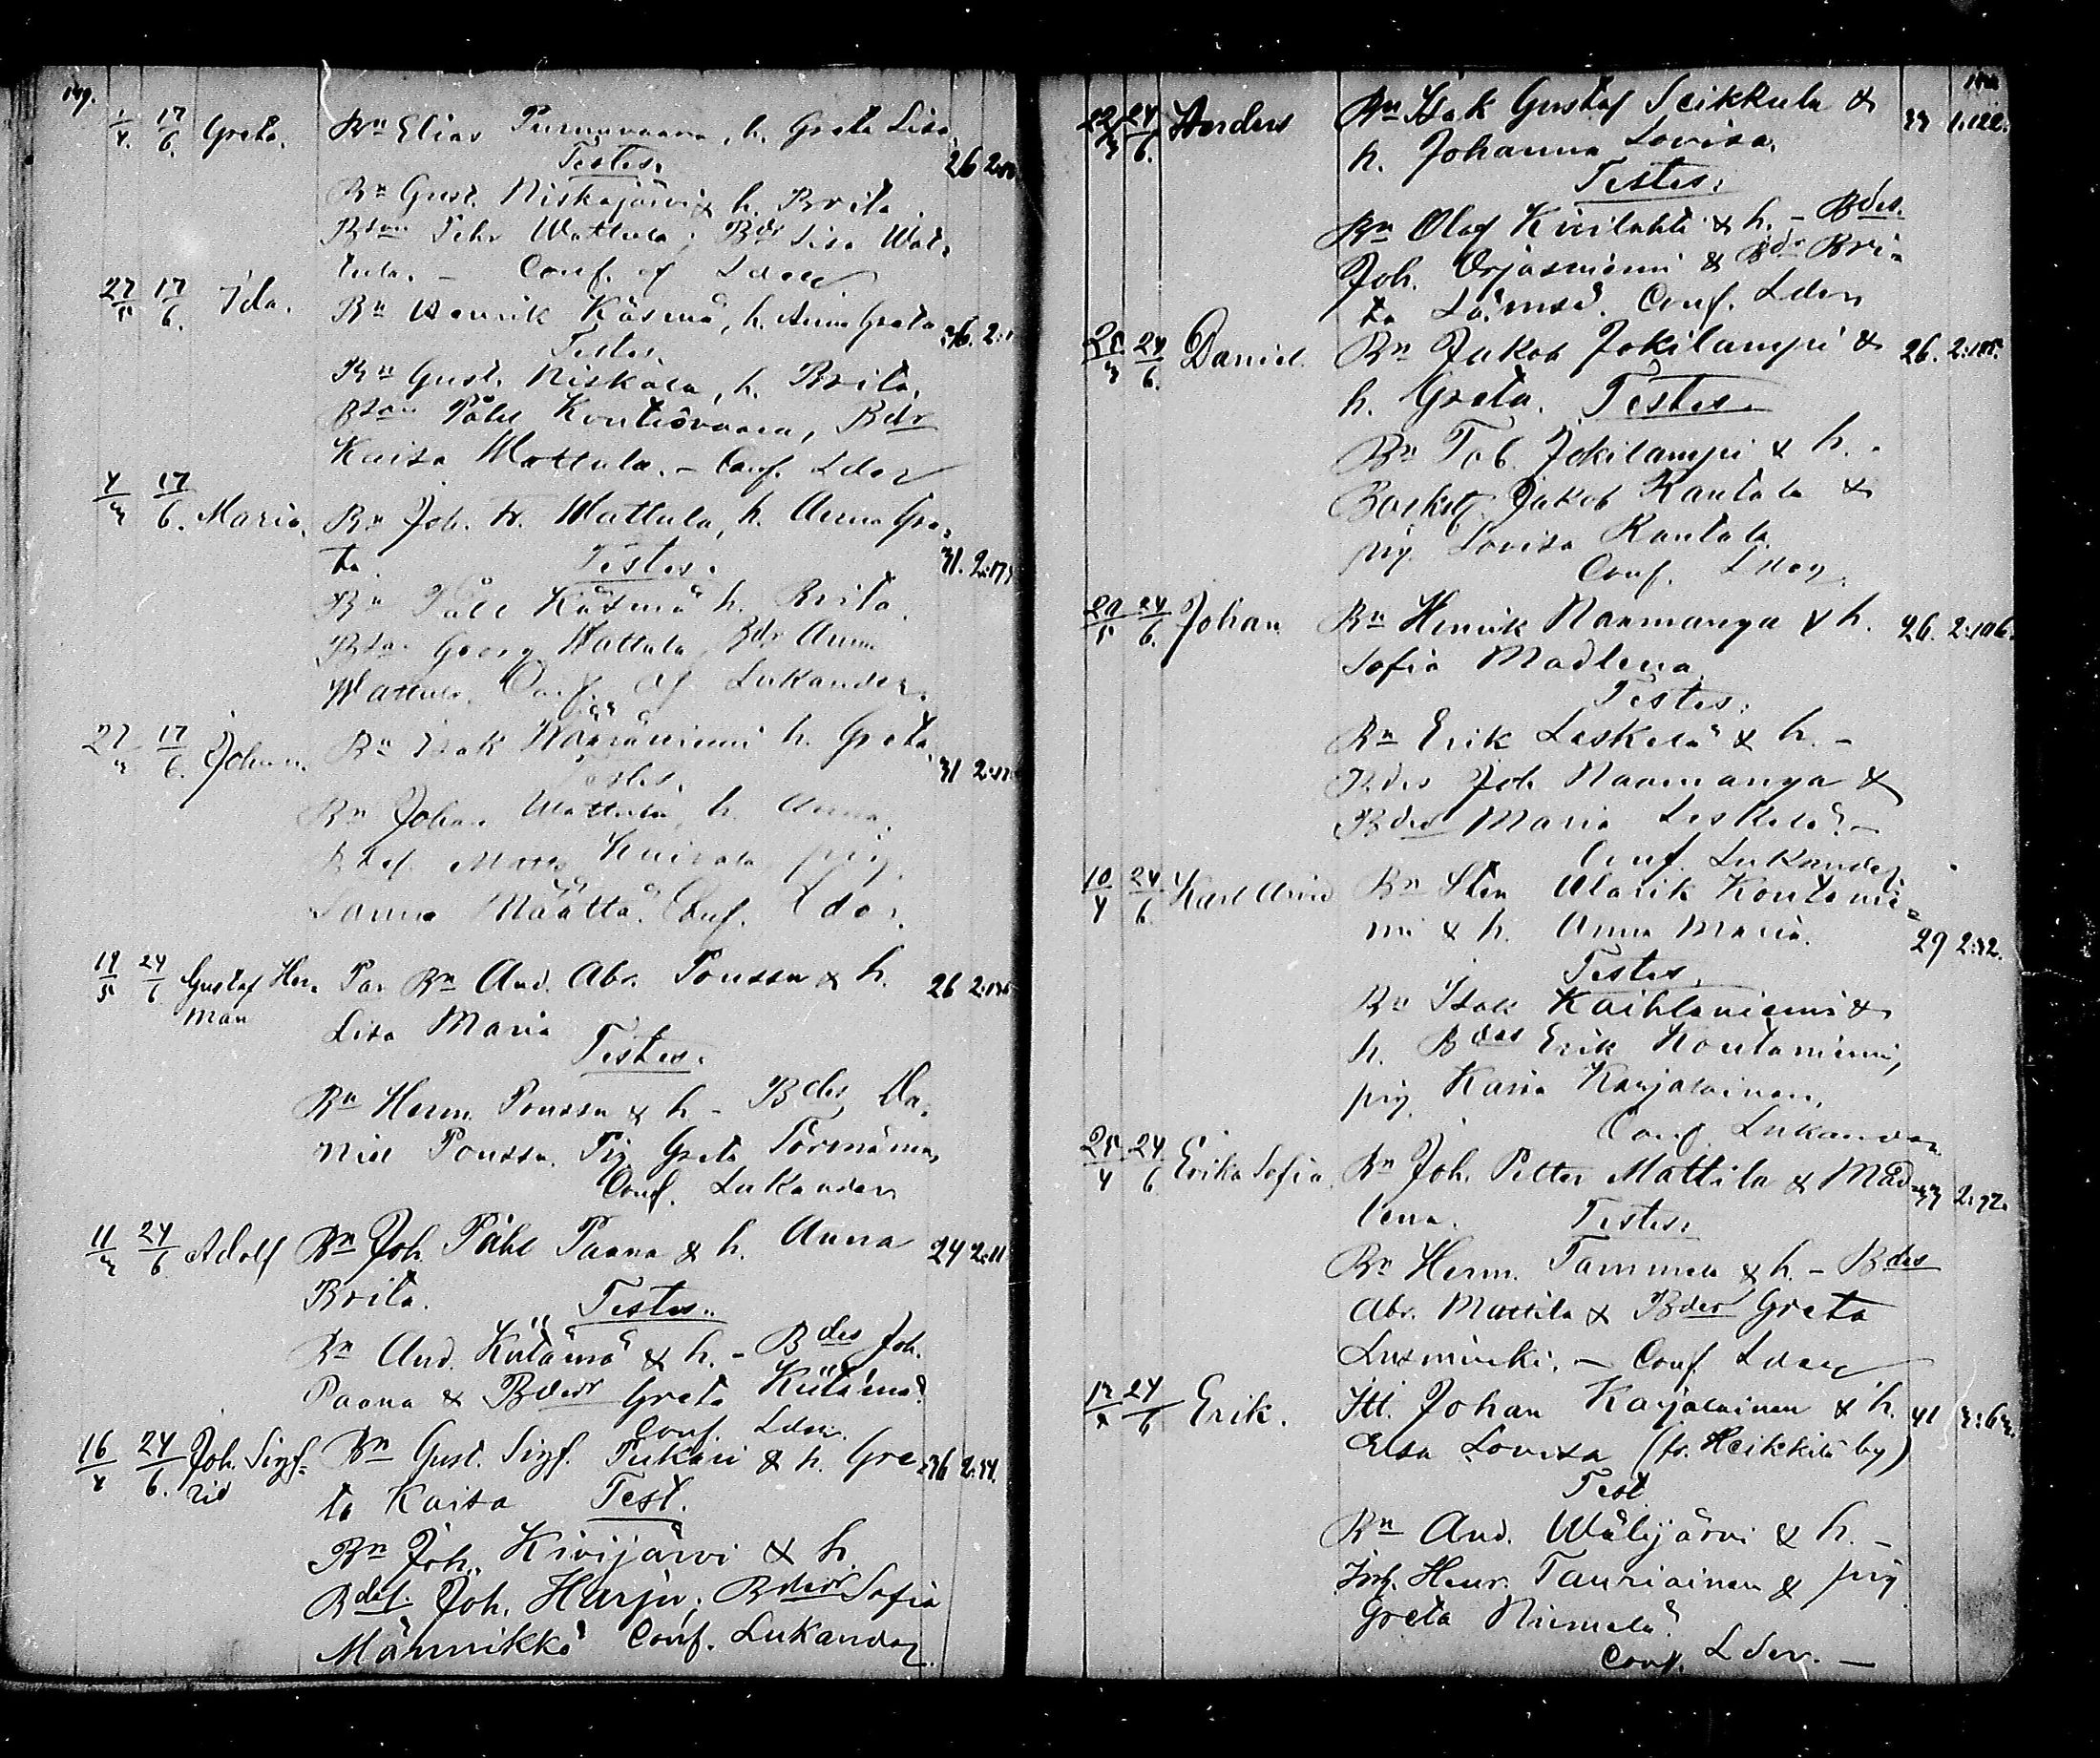 149.
1/4. 17/6. Greta. Bn Elias Purnuvaara, h. Greta Lisa. 26 2:
Testes.
Bn Gust. Niskajärvi & h. Brita
Bson Pehr Wattula; Bdr Lisa Wat-
tula. – Conf. of Lder
27/5 17/6. Ida. Bn Henrik Käsmä, h. Anna Greta 36. 2:
Testes.
Bn Gust. Niskala, h. Brita,
Bson Påhl Kontiovaara, Bdr
Kaisa Wattula. – Conf. Lder
4/3 17/6. Maria. Bn Joh. Wattula, h. Anna Gre-
ta. 31. 2:17
Testes.
Bn Påhl Käsmä h. Brita.
Bson Georg Wattula, Bdr Anna
Wattula. Conf. af Lukander.
27/3 17/6. Johan. Bn Isak Määräniemi h. Greta 31 2:
Testes.
Bn Johan Wattula, h. Anna.
Matts pig.
Sanna Määttä. Conf. Lder.
18/5 24/6 Gustaf Her- Bn And. Abr. Poussu & h. 26 2:
man Lisa Maria
Testes.
Bn Herm. Poussu & h – Bdes Da-
niel Poussu. Pig Greta Törmänen,
Conf. Lukander
11/3 24/6 Adolf Bn Joh. Påhl Paana & h. Anna 24 2:11
Brita. Testes.
Bn And. Kütämä & h. – Bdes Joh.
Paana & Bder Greta Kütämä
Conf. Lder.
16/4 24/6. Joh. Sigf- Bn Gust. Sigf. Tukari & h. Gre- 36 2:54.
rid ta Kaisa Test.
Bn Joh. Kivijärvi & h.
Bdes. Joh. Harju; Bder Sofia
Männikkö Conf. Lukander.
22/3 24/6. Anders Bn Isak Gustaf Seikkula & 33
h. Johanna Lovisa.
Testes.
Bn Olof Kivilahti & h. – Bdes.
Joh. Orjasniemi & Bdr Bri-
ta Lämsä. Conf. Lder
25/3 24/6. Daniel. Bn Jakob Jokilampi & 26. 2:105.
h. Greta. Testes.
Bn Tob. Jokilampi & h. –
Jakob Rantala &
pig. Lovisa Rantala
Conf. Lder.
29/5 24/6. Johan Bn Henrik Naamanga & h. 26. 2:106.
Sofia Madlena.
Testes.
Bn Erik Leskelä & h. –
Bdes Joh Naamanga &
Bder Maria Leskelä. –
Conf. Lukander
10/4 24/6. Karl Arvid Bn Sten Ularik Kontonie-
mi & h. Anna Maria. 29 2:32.
Testes.
Bn Isak Kaihlaniemi &
h. Bdes Erik Kontoniemi,
pig. Karin Karjalainen,
Conf. Lukander
25/4 24/6 Erika Sofia. Bn Joh. Petter Mattila & Mad- 33 2:72.
lena. Testes.
Bn Herm. Tammela & h. – Bdes
Abr. Mattila & Bder Greta
Lusminki. – Conf Lder
13/4 24/6 Erik. Itt. Johan Karjalainen & h. 41 3:63.
Elsa Lovisa (fr. Heikkilä by)
Test
Bn And. Wälijärvi & h. –
Inh. Henr. Tauriainen & pig
Greta Niemelä.
Conf. Lder. –